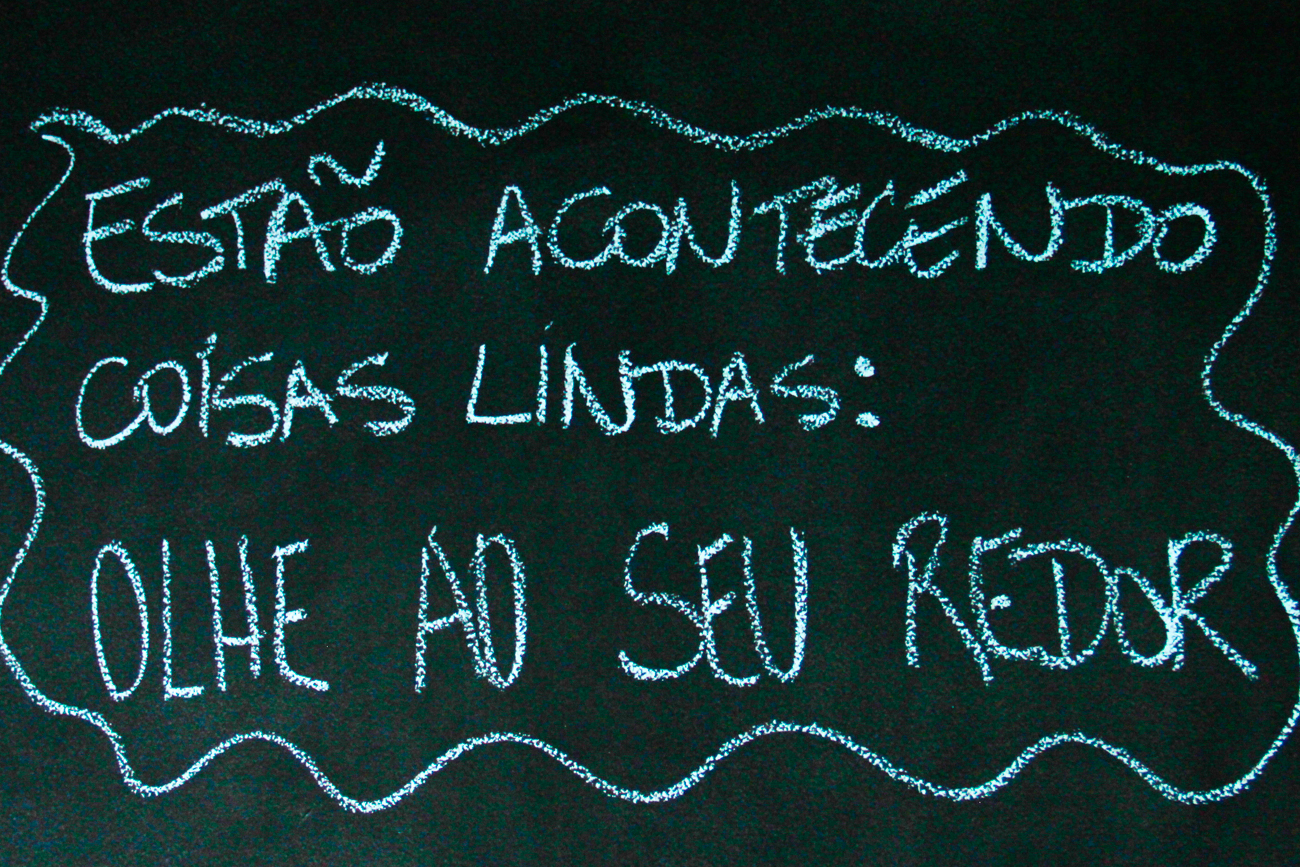 ESTÃO ACONTECENDO
COISAS LINDAS:
OLHE AO SEU REDOR